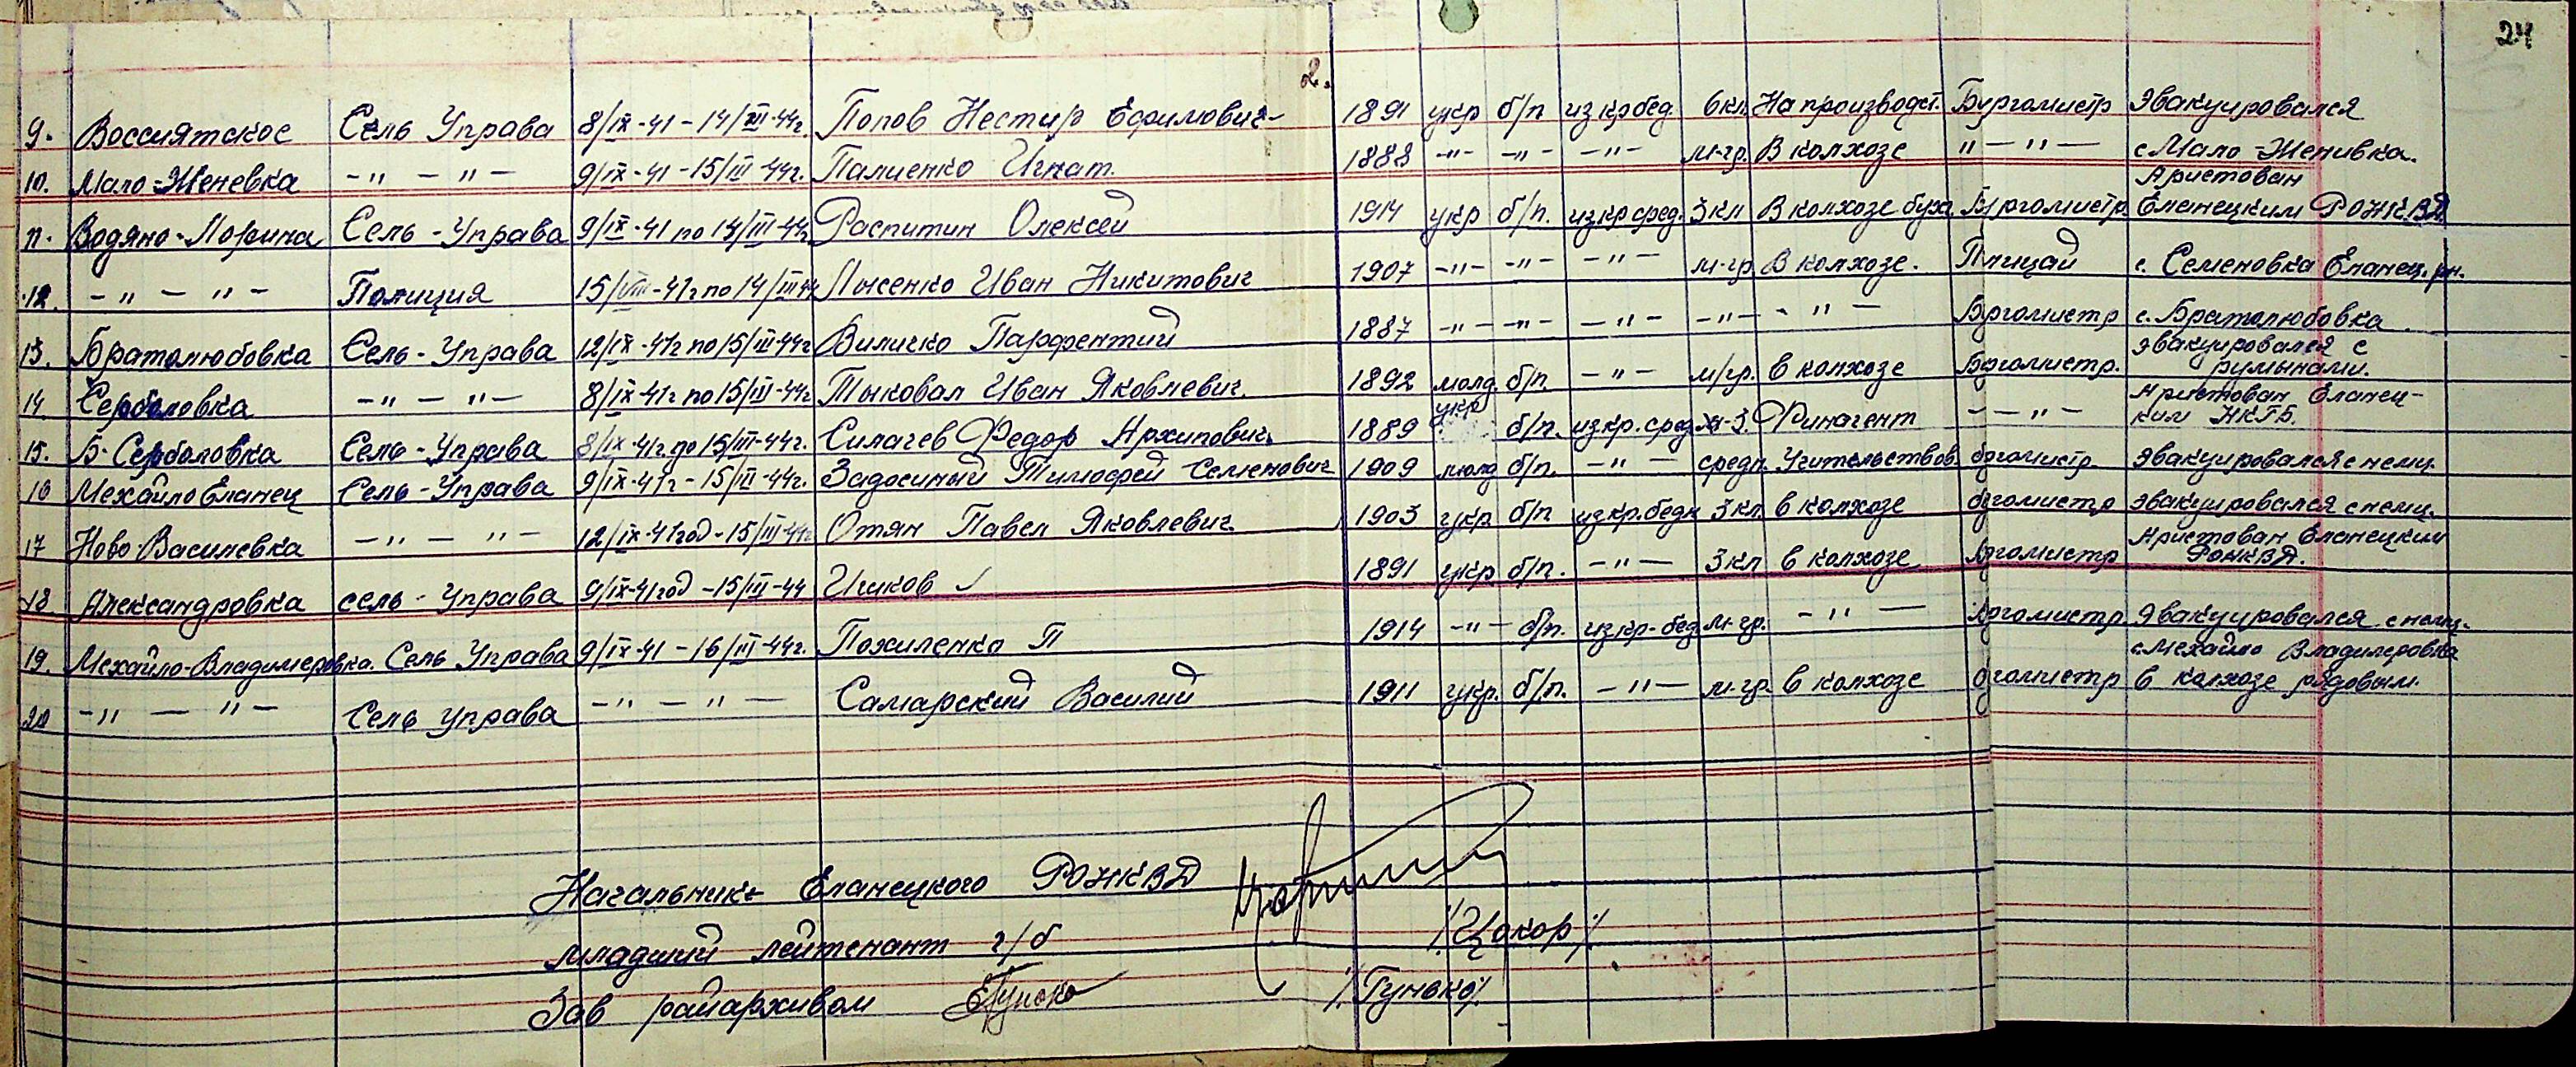 24
2.
9. Воссиятское Сель Управа 8/IX-41-14/III-44г. Попов Нестир Ефимович 1891 укр б/п из кр бед. 6кл. На производст. Бургомистр Эвакуировался
10. Мало-Женевка -"-"- 9/IX-41-15/III-44г. Палиенко Игнат. 1888 -"- -"- -"- м-гр. В колхозе "-"- с Мало-Женивка.
11. Водяно-Лорина Сель-Управа 9/IX-41 по 14/III-44г Распитин Олексей 1914 укр б/п. из кр сред. 3кл В колхозе бухг. Бургомистр Аристован Еланецким РОНКВД
12. -"-"- Полиция 15/VIII-41г по 14/III-44 Лысенко Иван Никитович 1907 -"- -"- -"- м-гр В колхозе. Плицай с. Семеновка Еланец. рн.
13. Братолюбовка Сель-Управа 12/IX-41г по 15/III-44г Виличко Парфентий 1887 -"- -"- -"- -"- -"- Бргомистр с. Братолюбовка
14. Серболовка -"-"- 8/IX-41г по 15/III-44г. Тыковал Иван Яковлевич. 1892 молд. б/п. -"- м/гр. в колхозе Бргомистр. эвакуировался с румынами.
15. Б-Серболовка Сель-Управа 8/IX-41г. по 15/III-44г. Силачев Федор Архипович. 1889 укр б/п. из кр. сред. Финагент -"- Аристован Еланецким НКГБ.
16 Мехайло Еланец Сель-Управа 9/IX-41г-15/III-44г. Задосиный Тимофей Семенович 1909 молд б/п. -"- средн. Учительствов. бргомистр. эвакуировался с немц.
17 Ново Василевка -"-"- 12/IX-41год-15/III-44г. Отян Павел Яковлевич 1903 укр. б/п из кр. бедн 3кл. в колхозе бргомистр эвакуировался с немц.
18 Александровка сель-Управа 9/IX-41год-15/III-44 1891 укр б/п. -"- 3кл в колхозе бргомистр Аристован Еланецким РОНКВД.
19. Мехайло-Владимеровка. Сель Управа 9/IX-41-16/III-44г. Похиленко П 1914 -"- б/п. из кр-бед м-гр. -"- бргомистр Эвакуировался с немц.
20 -"-"- Сель управа -"-"- Самарский Василий 1911 укр. б/п. -"- м-гр. в колхозе бргомистр с Мехайло Владимеровка в колхозе рядовым.
Начальник Еланецкого РОНКВД
младший лейтенант г/б /Цокор/
Зав райархивом /Гунько/